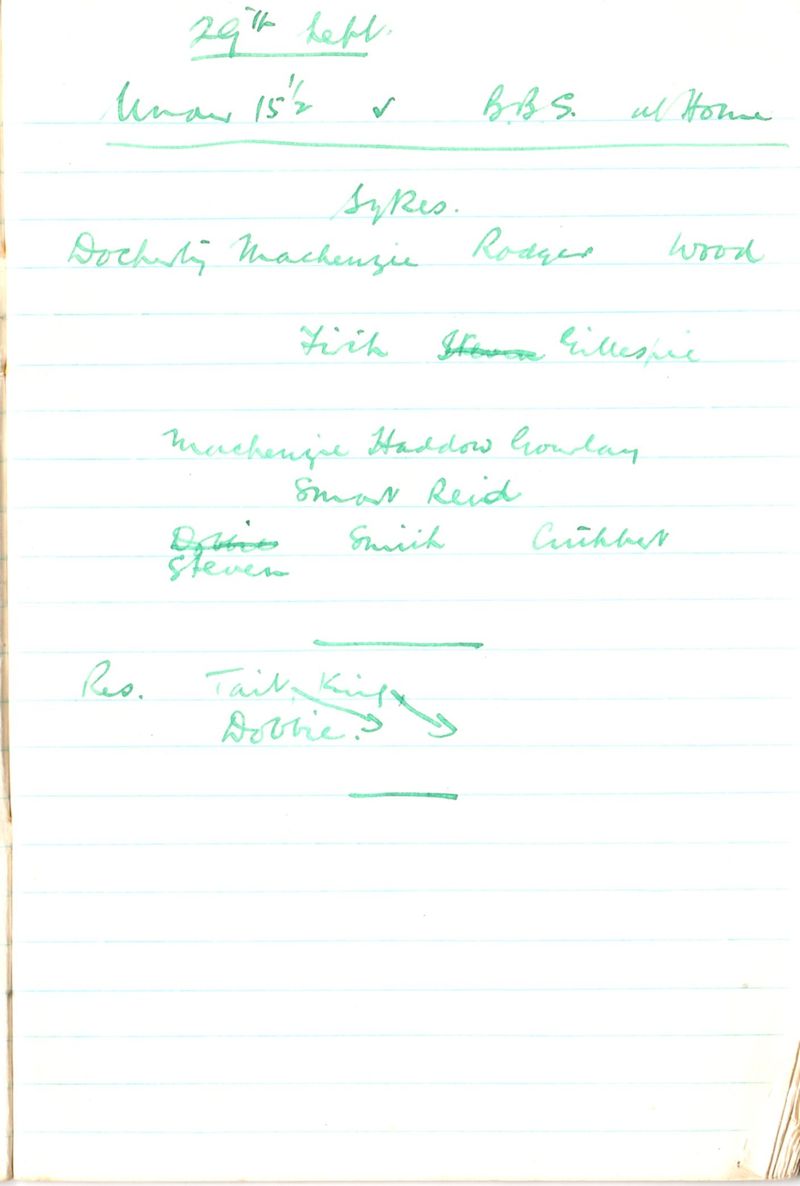 29th Sept.
Under 15½ v B.B.S. at Home
Sykes.
Docherty Mackenzie Rodger Wood
Firth Steven Gillespie
Mackenzie Haddow Gourlay
Smart Reid
Dobbie Smith Cuthbert
Steven
Res. Tait, King,
Dobbie.